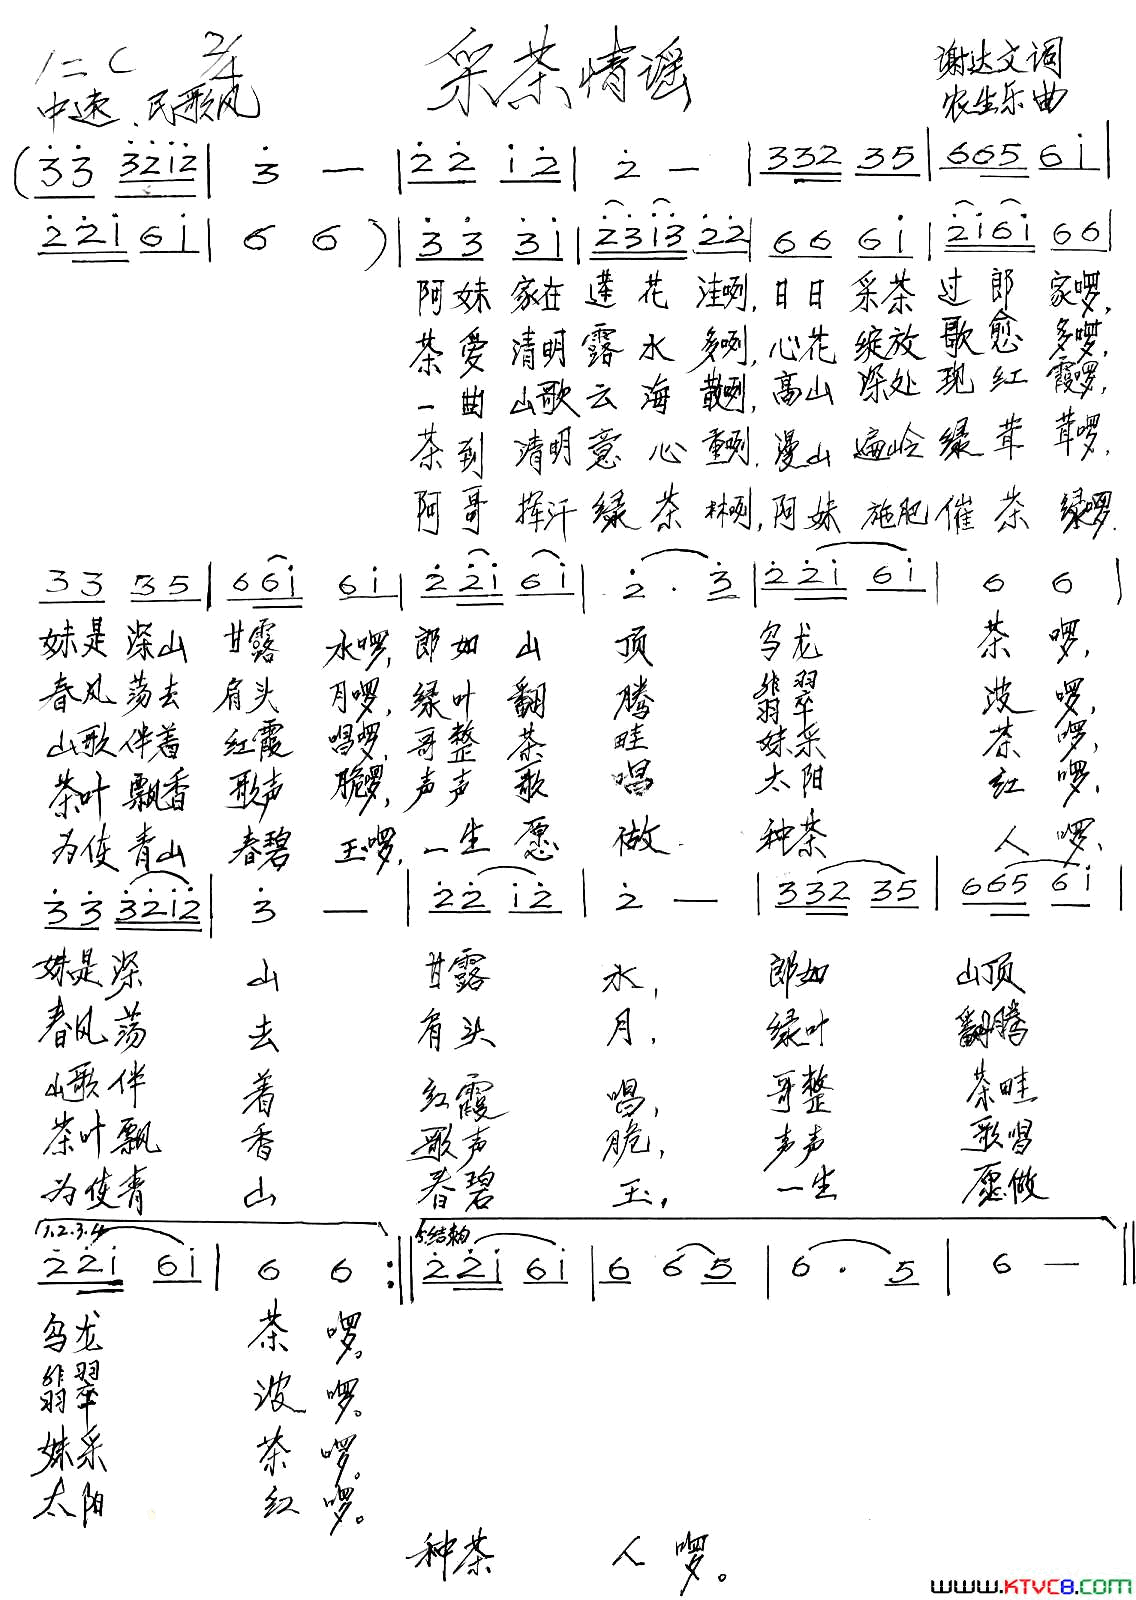 采茶情谣
1=C 2/4
谢达文词
中速、民歌风
农生乐曲
(3̇3̇ 3̇2̇1̇2̇ | 3̇ — | 2̇2̇ 1̇2̇ | 2̇ — | 332 35 | 665 61̇ |
2̇2̇1̇ 61̇ | 6 6 ) | 3̇3̇ 3̇1̇ | 2̇3̇1̇3̇ 2̇2̇ | 66 61̇ | 2̇1̇61̇ 66 |
阿妹 家在 莲花 洼咧, 日日 采茶 过郎 家啰,
茶爱 清明 露水 多咧, 心花 绽放 歌愈 多啰,
一曲 山歌 云海 散咧, 高山 深处 现红 霞啰,
茶到 清明 意心 重咧, 漫山 遍岭 绿茸 茸啰,
阿哥 挥汗 绿茶 林咧, 阿妹 施肥 催茶 绿啰.
33 35 | 661̇ 61̇ | 2̇2̇1̇ 61̇ | 2̇ · 3̇ | 2̇2̇1̇ 61̇ | 6 6 |
妹是 深山 甘露 水啰, 郎如 山 顶 乌龙 茶 啰,
春风 荡去 肩头 月啰, 绿叶 翻 腾 翡翠 波 啰,
山歌 伴着 红霞 唱啰, 哥整 茶 畦 妹采 茶 啰,
茶叶 飘香 歌声 脆啰, 声声 歌 唱 太阳 红 啰,
为使 青山 春碧 玉啰, 一生 愿 做 种茶 人 啰、
3̇3̇ 3̇2̇1̇2̇ | 3̇ — | 2̇2̇ 1̇2̇ | 2̇ — | 332 35 | 665 61̇ |
妹是深 山 甘露 水, 郎如 山顶
春风荡 去 肩头 月, 绿叶 翻腾
山歌伴 着 红霞 唱, 哥整 茶畦
茶叶飘 香 歌声 脆, 声声 歌唱
为使青 山 春碧 玉, 一生 愿做
1.2.3.4 5.结束句
2̇2̇1̇ 61̇ | 6 6 :‖ 2̇2̇1̇ 61̇ | 6 65 | 6 · 5 | 6 — ‖
乌龙 茶 啰。
翡翠 波 啰。
妹采 茶 啰。
太阳 红 啰。
种茶 人 啰。
www.KTVC8.COM